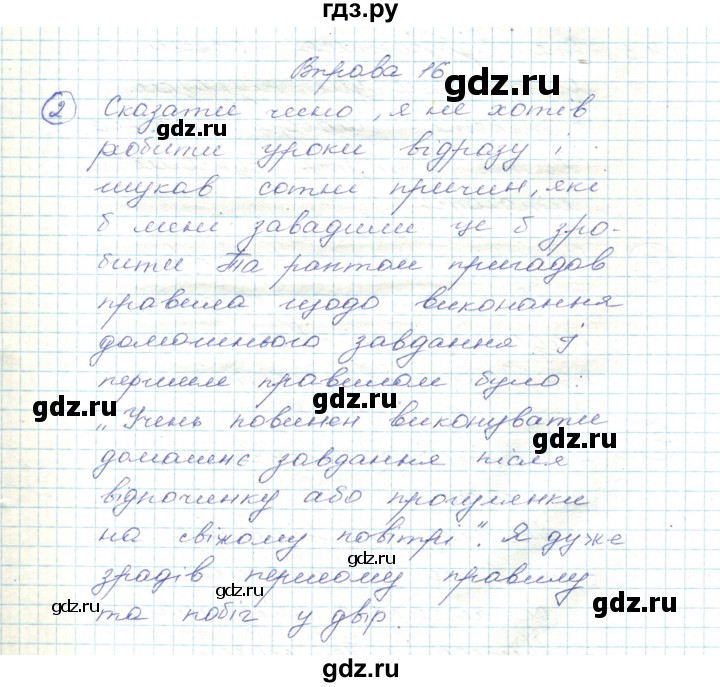 гдз.ру
Вправа 16
gdz.ru
2 Сказати чесно, я не хотів
gdz.ru
робити уроки відразу і
gdz.ru
шукав сотні причин, які
б мені завадили це б зро-
gdz.ru
бити Та раптом пригадав
gdz.ru
правила щодо виконання
gdz.ru
домашнього завдання І
gdz.ru
першим правилом було:
gdz.ru
„Учень повинен виконувати
gdz.ru
домашнє завдання після
gdz.ru
відпочинку або прогулянки
на свіжому повітрі". Я дуже
gdz.ru
зрадів першому правилу
gdz.ru
gdz.ru
та побіг у двір.
gdz.ru
гдз.ру